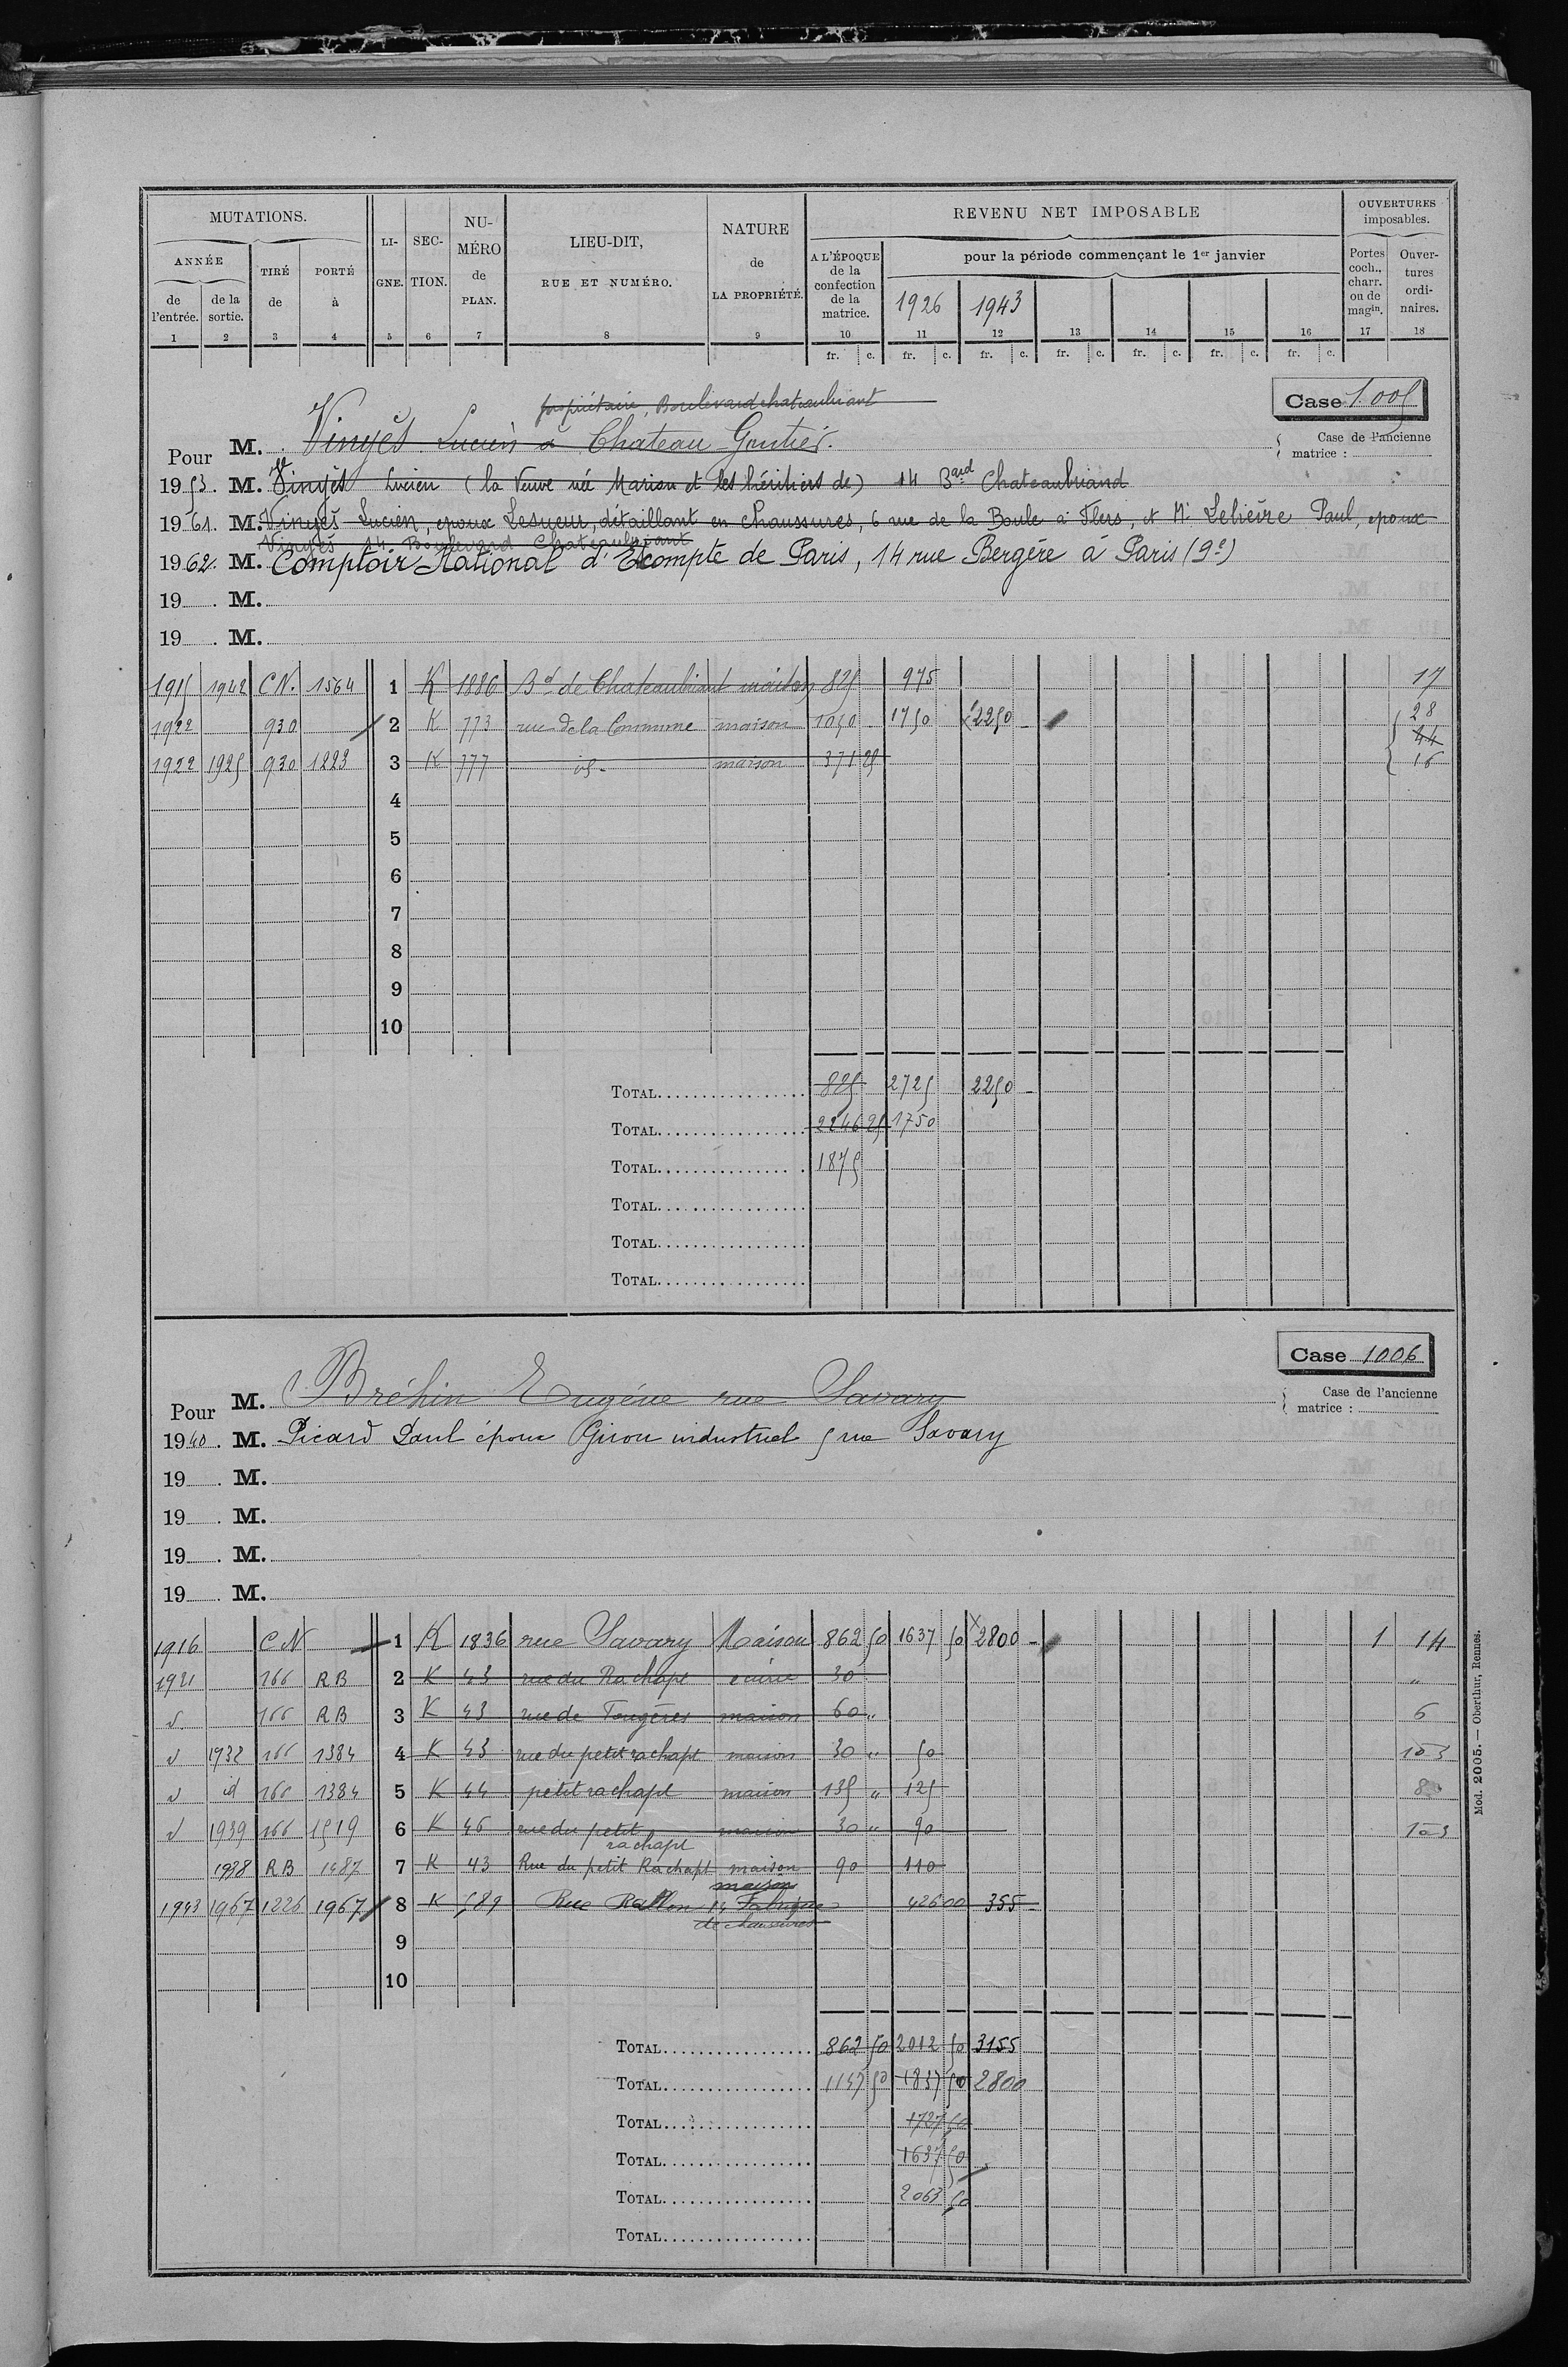 MUTATIONS.
ANNÉE
de l'entrée.
de la sortie.
TIRÉ de
PORTÉ à
LI-GNE.
SEC-TION.
NU-MÉRO de PLAN.
LIEU-DIT,
RUE ET NUMÉRO.
NATURE de LA PROPRIÉTÉ.
REVENU NET IMPOSABLE
A L'ÉPOQUE de la confection de la matrice.
pour la période commençant le 1er janvier
1926 1943
OUVERTURES imposables.
Portes coch., charr. ou de magin.
Ouver-tures ordi-naires.
1 2 3 4 5 6 7 8 9 10 11 12 13 14 15 16 17 18
fr. c. fr. c. fr. c. fr. c. fr. c. fr. c. fr. c.
Case 1.005
propriétaire, Boulevard chateaubriant
Pour M. Vingès Lucien à Chateau Gontier.
Case de l'ancienne matrice :
1953. M. Vingès Lucien (la Veuve née Marion et les héritiers de) 14 Bard Chateaubriand
1961. M. Vingès Lucien, epoux Lesueur, détaillant en chaussures, 6 rue de la Boule à Flers, et Mr Lelièvre Paul, epoux
Vingès 14 Boulevard Chateaubriant
1962. M. Comptoir National d'Escompte de Paris, 14 rue Bergère à Paris (9e)
19 . M.
19 . M.
1915 1942 CN. 1564 1 K 1886 Bd de Chateaubriant maison 825 975 17
1922 930 2 K 773 rue de la Commune maison 1050 1750 2250 28
44
1922 1925 930 1223 3 K 777 id - maison 371 25 16
4
5
6
7
8
9
10
TOTAL 825 2725 2250
TOTAL 2246 25 1750
TOTAL 1875
TOTAL
TOTAL
TOTAL
Case 1006
Pour M. Bréhin Eugène rue Savary
Case de l'ancienne matrice :
1940. M. Picard Paul époux Girou industriel 5 rue Savary
19 . M.
19 . M.
19 . M.
19 . M.
1916 CN 1 K 1836 rue Savary Maison 862 50 1637 50 2800 1 14
1921 166 RB 2 K 43 rue du Rachapt écurie 30 "
d 166 RB 3 K 43 rue de Fougères maison 60 " 6
d 1932 166 1384 4 K 43 rue du petit rachapt maison 30 " 50
d id 166 1384 5 K 44 petit rachapt maison 135 " 125 8
d 1939 166 1519 6 K 46 rue du petit rachapt maison 30 " 90
1938 RB 1487 7 K 43 Rue du petit Rachapt maison 90 110
maison
1943 1967 1226 1967 8 K 589 Rue Rallon 14 Fabrique 426 00 355
de chaussures
9
10
TOTAL 862 50 2012 50 3155
TOTAL 1147 50 1837 50 2800
TOTAL 1727 50
TOTAL 1637 50
TOTAL 2063 50
TOTAL
Mod. 2005. — Oberthur, Rennes.